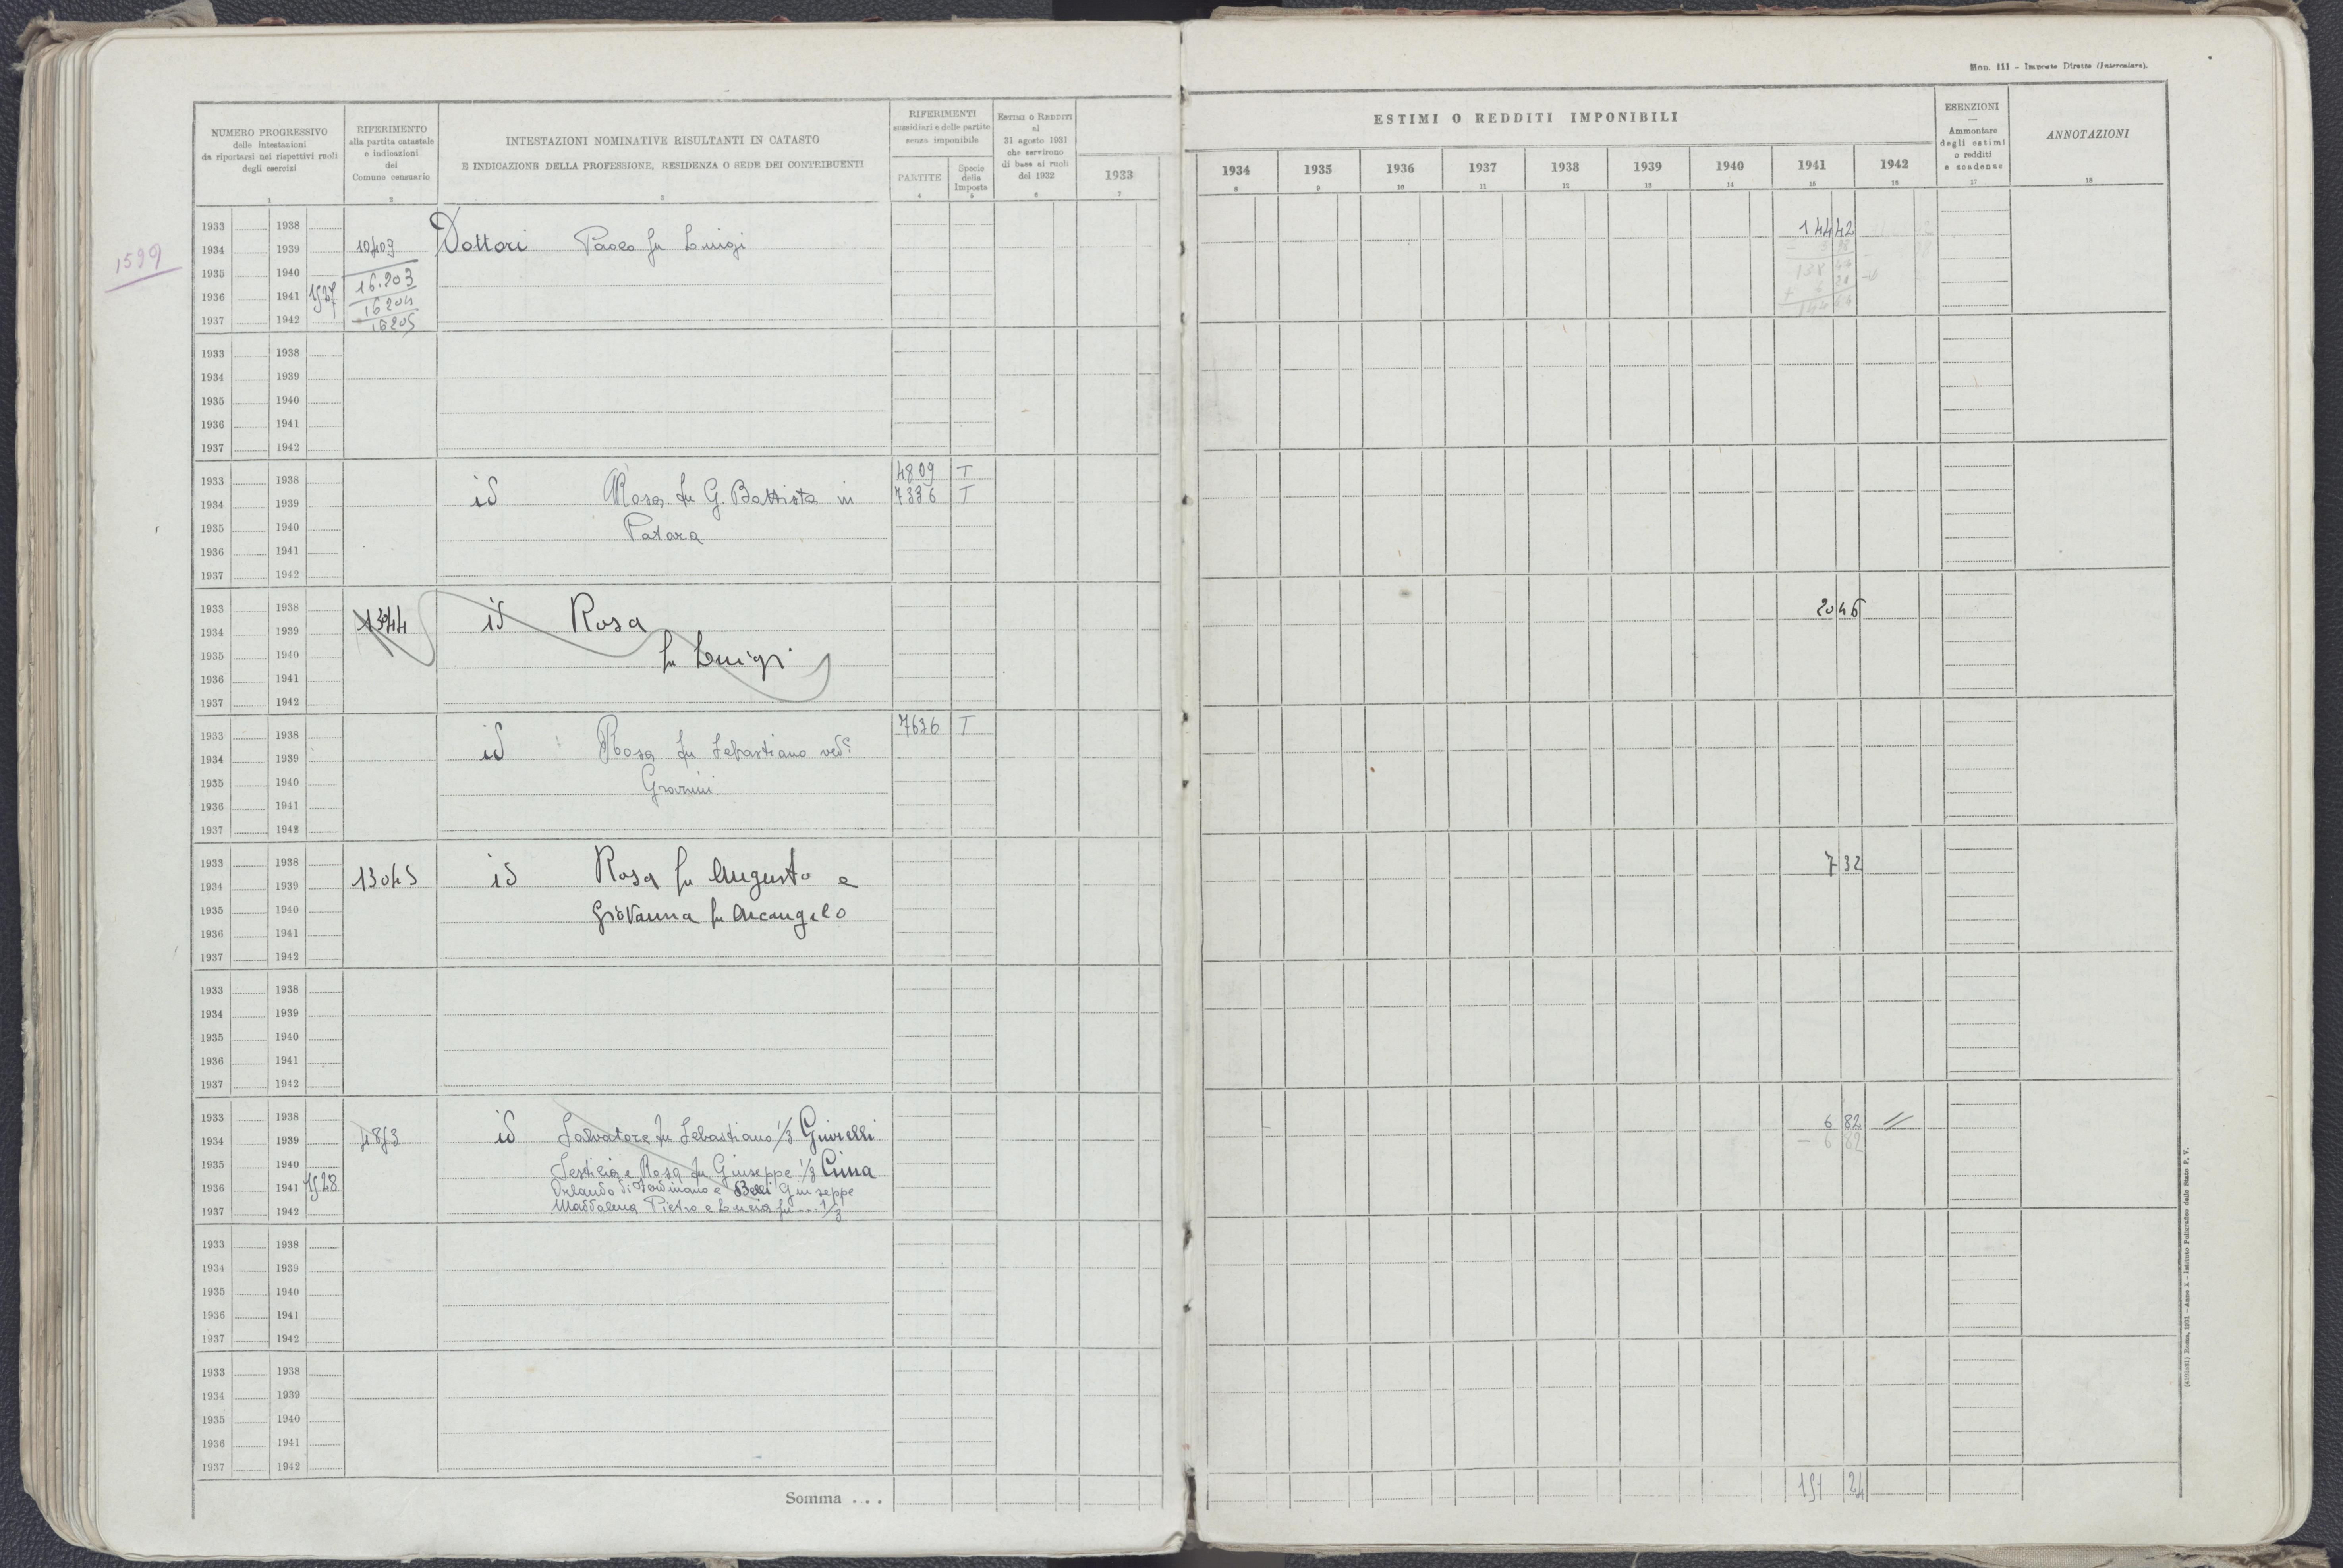 Mod. 111 - Imposte Dirette (Intercalare).
NUMERO PROGRESSIVO
delle intestazioni
da riportarsi nei rispettivi ruoli
degli esercizi
1
RIFERIMENTO
alla partita catastale
e indicazioni
del
Comune censuario
2
INTESTAZIONI NOMINATIVE RISULTANTI IN CATASTO
E INDICAZIONE DELLA PROFESSIONE, RESIDENZA O SEDE DEI CONTRIBUENTI
3
RIFERIMENTI
sussidiari e delle partite
senza imponibile
PARTITE
4
Specie
della
Imposta
5
Estimi o Redditi
al
31 agosto 1931
che servirono
di base ai ruoli
del 1932
6
ESTIMI O REDDITI IMPONIBILI
1933 1934 1935 1936 1937 1938 1939 1940 1941 1942
7 8 9 10 11 12 13 14 15 16
ESENZIONI
Ammontare
degli estimi
o redditi
e scadenze
17
ANNOTAZIONI
18
1599
1933 1938 14442
1934 1939 10409 Dottori Paolo fu Luigi
1935 1940 16.203
1936 1941 1527 16204
1937 1942 16205
1933 1938
1934 1939
1935 1940
1936 1941
1937 1942
1933 1938 4809 T
1934 1939 id Rosa fu G. Battista in 7336 T
1935 1940 Patara
1936 1941
1937 1942
1933 1938 id Rosa 2046
1934 1939 13044
1935 1940 fu Luigi
1936 1941
1937 1942
1933 1938 7626 T
1934 1939 id Rosa fu Sebastiano ved.
1935 1940
1936 1941
1937 1942
1933 1938 732
1934 1939 13045 id Rosa fu Augusto e
1935 1940 Giovanna fu Arcangelo
1936 1941
1937 1942
1933 1938
1934 1939
1935 1940
1936 1941
1937 1942
1933 1938 6 82 //
1934 1939 4853 id Salvatore fu Sebastiano 1/3 Giorelli - 6 82
1935 1940 Sestilia e Rosa fu Giuseppe 1/3 Cima
1936 1941 1528 Orlando di Ferdinando e Belli Giuseppe
1937 1942 Maddalena Pietro e Lucia fu ... 1/3
1933 1938
1934 1939
1935 1940
1936 1941
1937 1942
1933 1938
1934 1939
1935 1940
1936 1941
1937 1942
Somma . . . 151 24
Roma, 1931 - Anno X - Istituto Poligrafico dello Stato P. V.